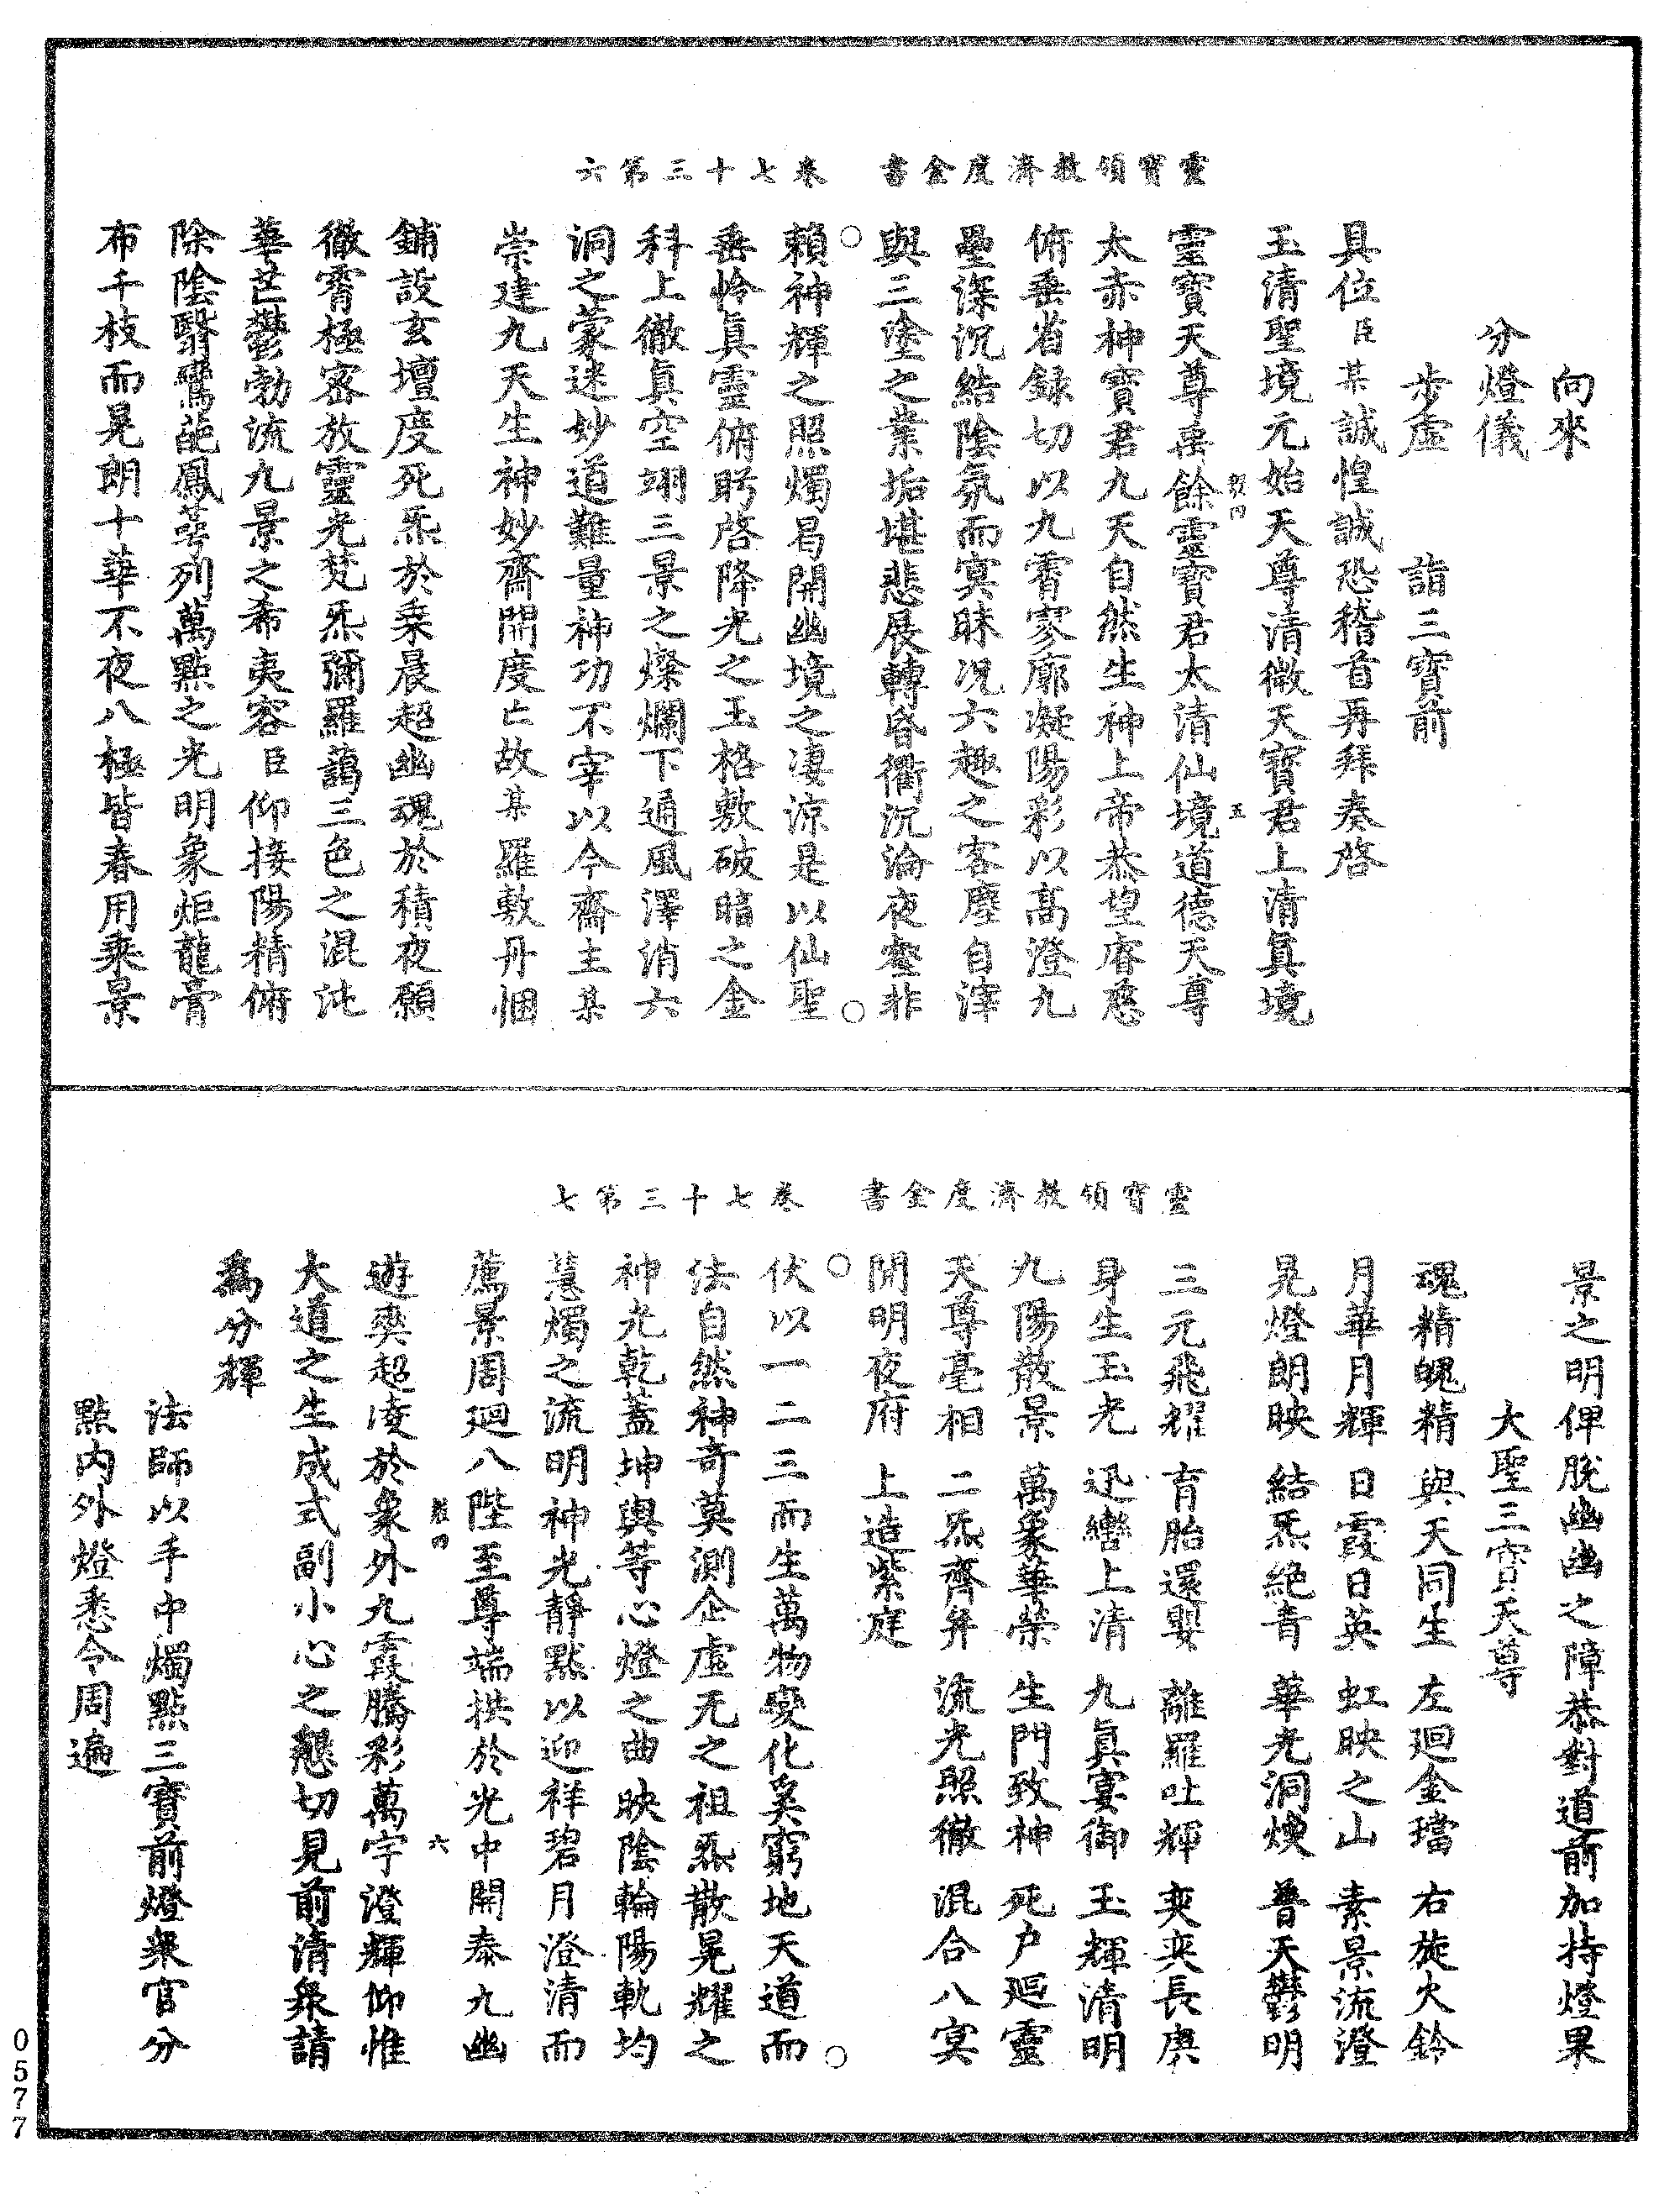 靈寶領教濟度金書　卷七十三第六
向來
分燈儀
步虛　詣三寶前
具位臣某誠惶誠恐稽首再拜奏啓
玉清聖境元始天尊清微天寶君上清眞境
靈寶天尊禹餘靈寶君太清仙境道德天尊
太赤神寶君九天自然生神上帝恭望睿慈
俯垂省録切以九霄寥廓凝陽彩以高澄九
壘深沉結陰氛而冥昧况六趣之客塵自滓
與三塗之業垢堪悲展轉昏衢沉淪夜壑非
賴神輝之照燭曷開幽境之凄涼是以仙聖
垂怜眞靈俯盻啓降光之玉格敷破暗之金
科上徹眞空翊三景之燦爛下通風澤消六
洞之蒙迷妙道難量神功不宰以今齋主某
崇建九天生神妙齋開度亡故某羅敷丹悃
鋪設玄壇度死炁於桒晨超幽魂於積夜願
徹霄極密放靈光梵炁彌羅藹三色之混沌
華芒鬱勃流九景之希夷容臣仰接陽精俯
除陰翳鸞葩鳳萼列萬點之光明象炬龍膏
布千枝而晃朗十華不夜八極皆春用乘景
靈寶領教濟度金書　卷七十三第七
景之明俾脫幽幽之障恭對道前加持燈果
大聖三寶天尊
魂精魄精　與天同生　左廻金璫　右旋火鈴
月華月輝　日霞日英　虹映之山　素景流澄
晃燈朗映　結炁絕青　華光洞煥　普天鬱明
三元飛耀　育胎還嬰　離羅吐輝　奕奕長庚
身生玉光　迅轡上清　九眞宴御　玉輝清明
九陽散景　萬象華榮　生門致神　死户廻靈
天尊毫相　二炁齊并　流光照徹　混合八冥
開明夜府　上造紫庭
伏以一二三而生萬物變化奚窮地天道而
法自然神奇莫測企虛无之祖炁散晃耀之
神光乾蓋坤輿等心燈之曲映陰輪陽軌均
慧燭之流明神光靜默以迎祥碧月澄清而
薦景周廻八陛至尊端拱於光中開泰九幽
遊奕超凌於象外九霞騰彩萬宇澄輝仰惟
大道之生成式副小心之懇切見前清衆請
爲分輝
法師以手中燭點三寶前燈衆官分
點內外燈悉令周遍
0577